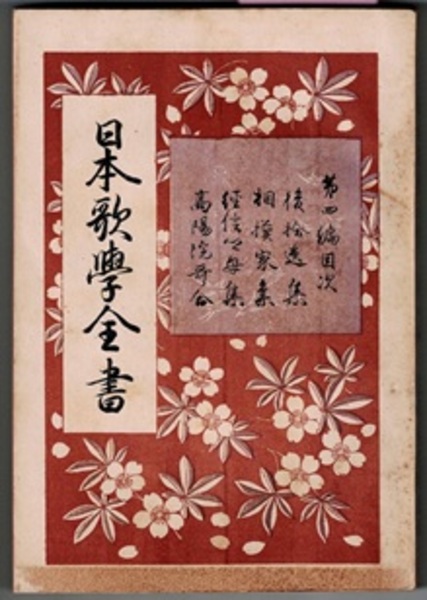 第四編目次
後拾遺集
相摸家集
經信卿母集
高陽院哥合
日本歌學全書